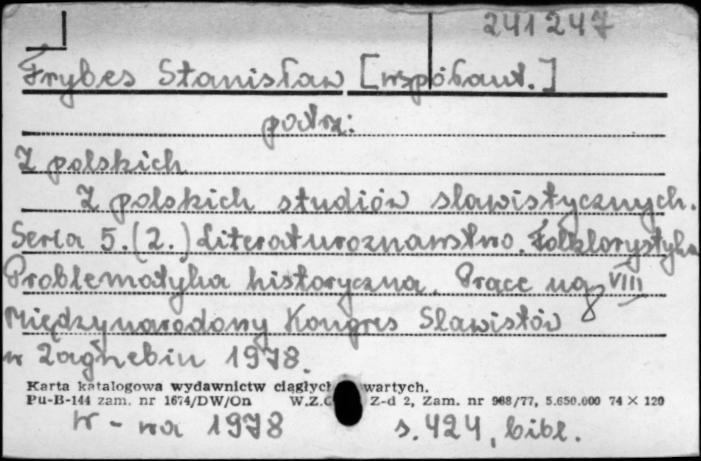 241247
Frybes Stanisław [współaut.]
patrz:
Z polskich
Z polskich studiów slawistycznych.
Seria 5.(2.) Literaturoznawstwo. Folklorystyka
Problematyka historyczna. Prace na VIII
Międzynarodowy Kongres Slawistów
w Zagrzebiu 1978.
Karta katalogowa wydawnictw ciągłych wartych.
Pu-B-144 zam. nr 1674/DW/On W.Z. Z-d 2, Zam. nr 968/77, 5.650.000 74 × 120
W-wa 1978 s. 424, bibl.